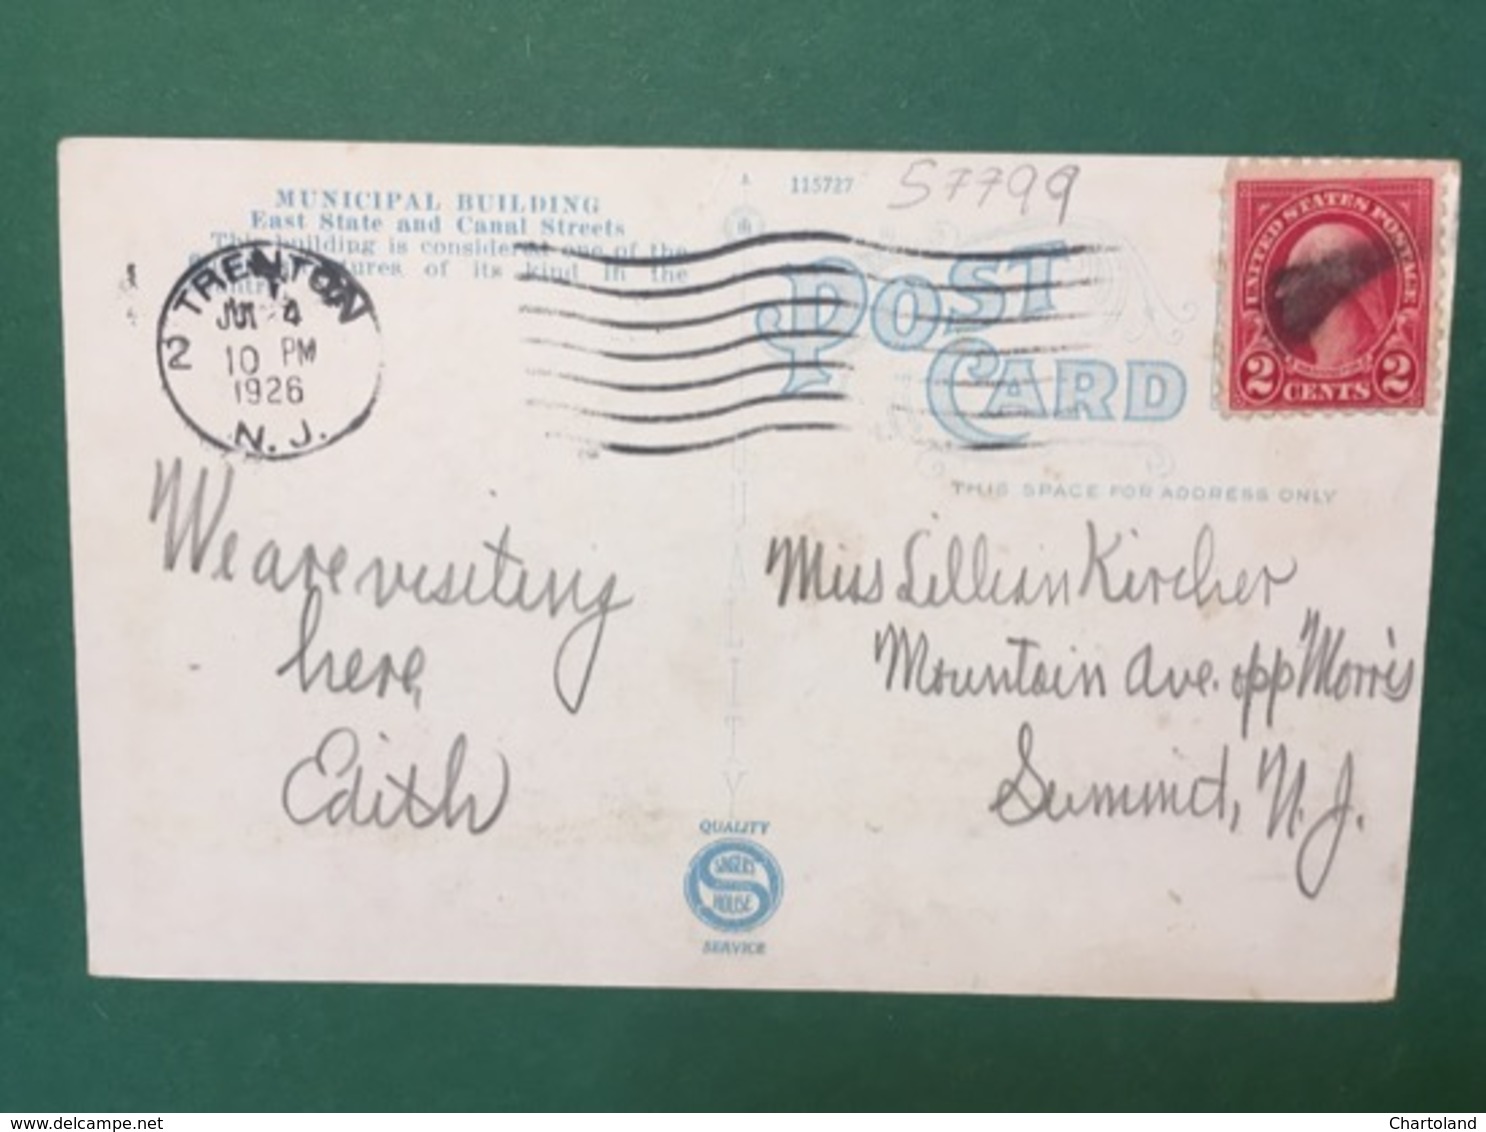 MUNICIPAL BUILDING
East State and Canal Streets
This building is considered one of the
of its kind in the
115727
57799
POST
CARD
THIS SPACE FOR ADDRESS ONLY
UNITED STATES POSTAGE
2 CENTS 2
2 TRENTON
4
10 PM
1926
N. J.
We are visiting
here,
Edith
Miss Lillian Kircher
Mountain Ave. opp Morris
Summit, N. J.
QUALITY
SINGERS
HOUSE
SERVICE
QUALITY
www.delcampe.net
Chartoland